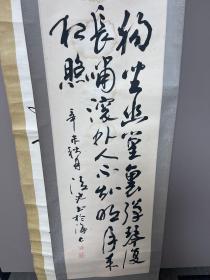 獨坐幽篁裏弹琴復
長嘯深林人不知明月来
相照
辛未秋月
書於海上